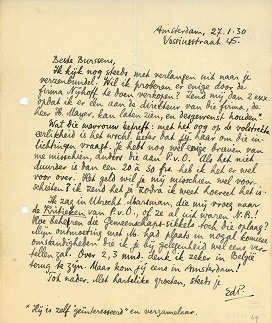 Amsterdam, 27.1.30
Vossiusstraat 45.
Beste Burssens,
Ik kijk nog steeds met verlangen uit naar je
verzenbundel. Wil ik proberen er enige door de
firma Nijhoff te doen verkopen? Zend mij dan 2 exx.
opdat ik er één aan de direkteur van die firma, de
heer H. Mayer, kan laten zien, en desgewenst houden.*
Wat die mevrouw betreft: met het oog op de volstrekte
eerlijkheid is het wschl. beter dat jij haar om die in-
lichtingen vraagt. Je hebt nog wel enige brieven van
me misschien, andere die aan P.v.O. Als het niet
duurder is dan een 20 à 30 frs heb ik het er wel
voor over. Het geld wil je mij misschien wel voor-
schieten? ik zend het je zodra ik weet hoeveel het is.
Ik zag in Utrecht Marsman, die mij vroeg naar
de Kritieken van P.v.O., of ze al uit waren N.B.!
Hoe behoeven die Gemeenschaps-sikkels toch die
Mijn ontmoeting met M. had plaats in nogal komieke
omstandigheden die ik je bij gelegenheid wel eens ver-
tellen zal. Over 2, 3 mnd. denk ik zeker in België
terug te zijn. Maar kom jij eens in Amsterdam!
Tot nader. Met hartelijke groeten, steeds je
EdP.
* Hij is zelf "geïnteresseerd" en verzamelaar.